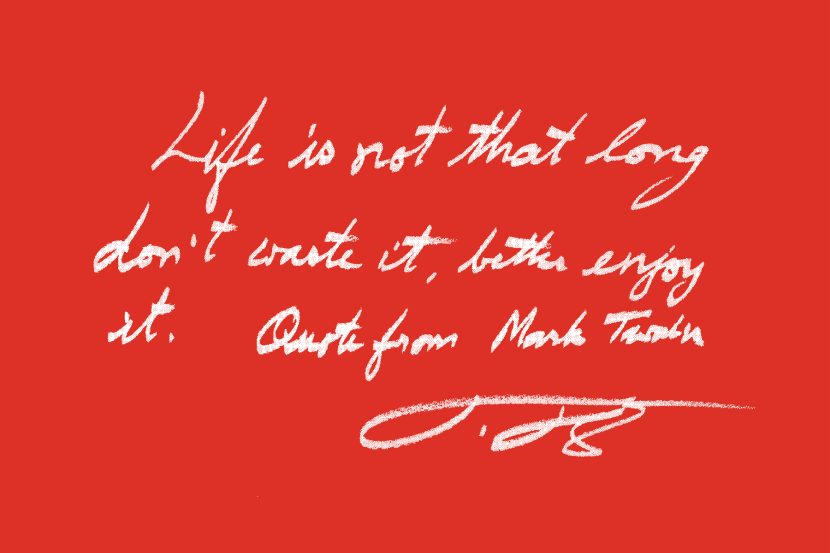 Life is not that long
don't waste it, better enjoy
it. Quote from Mark Twain